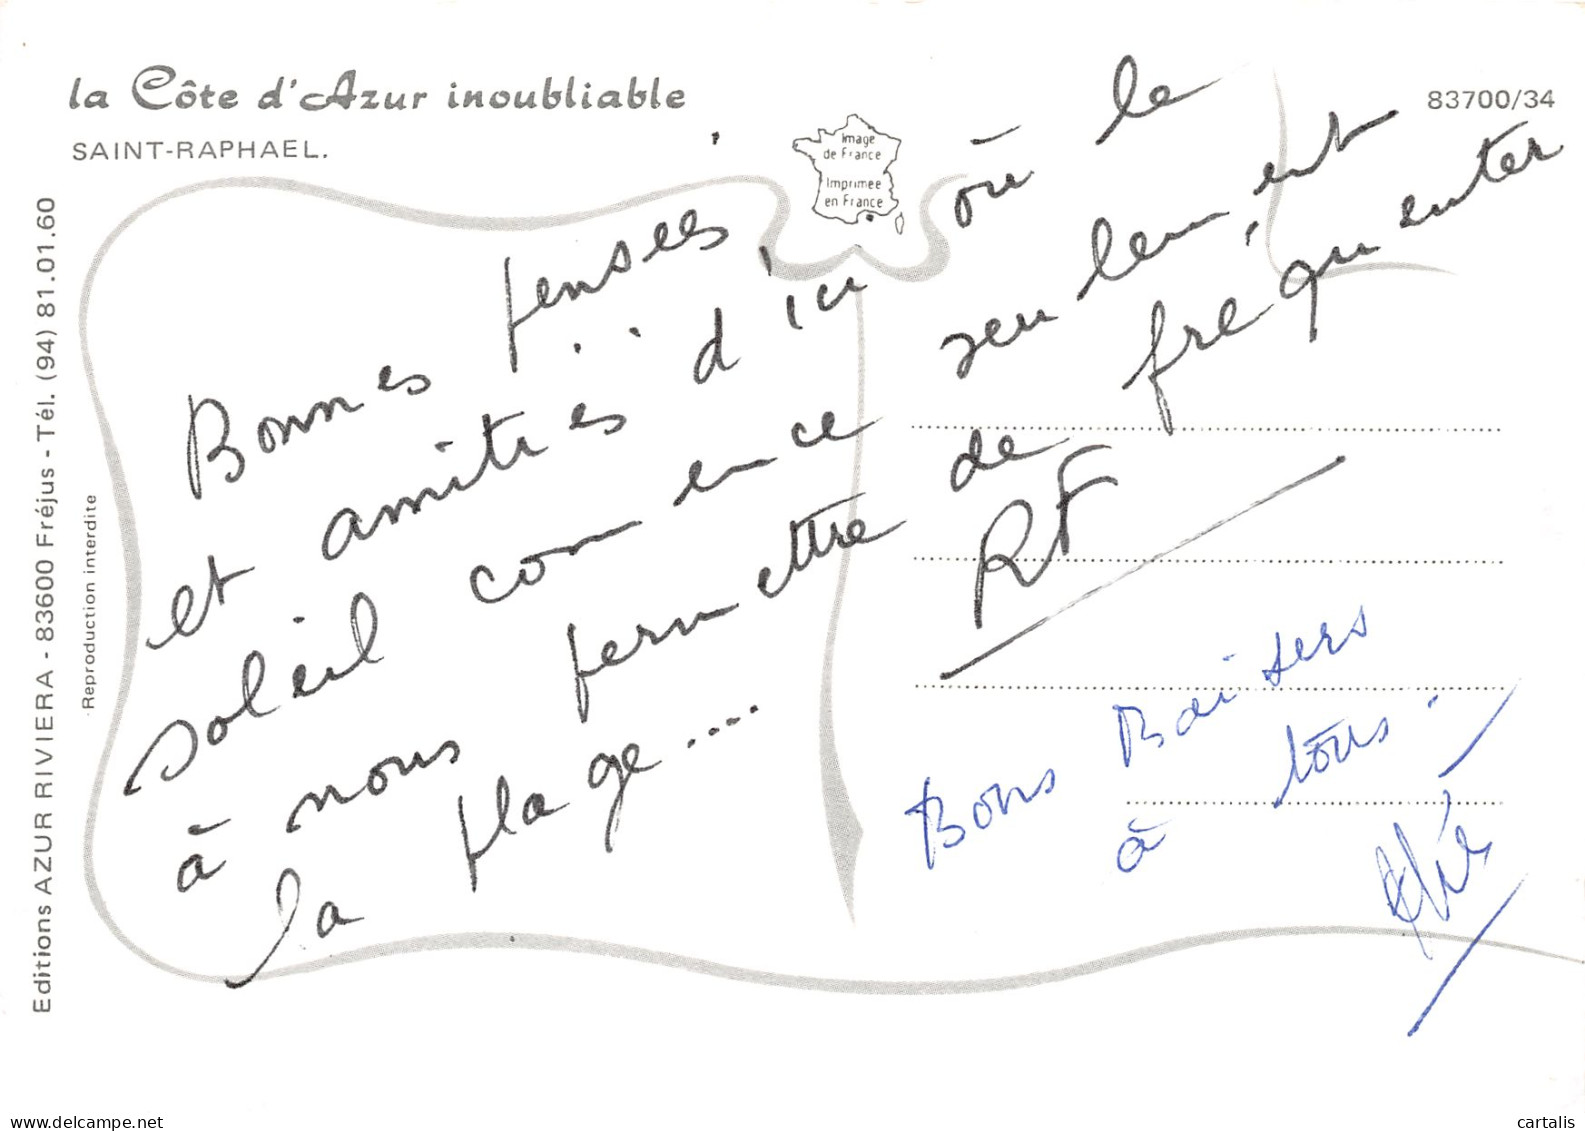 la Côte d'Azur inoubliable
SAINT-RAPHAEL.
83700/34
Image
de France
Imprimée
en France
Editions AZUR RIVIERA - 83600 Fréjus - Tél. (94) 81.01.60
Reproduction interdite
Bonnes pensées
et amitiés d'ici où le
soleil commence seulement
à nous permettre de frequenter
la plage....
RF
Bons Baisers
à tous.
delcampe.net
cartalis